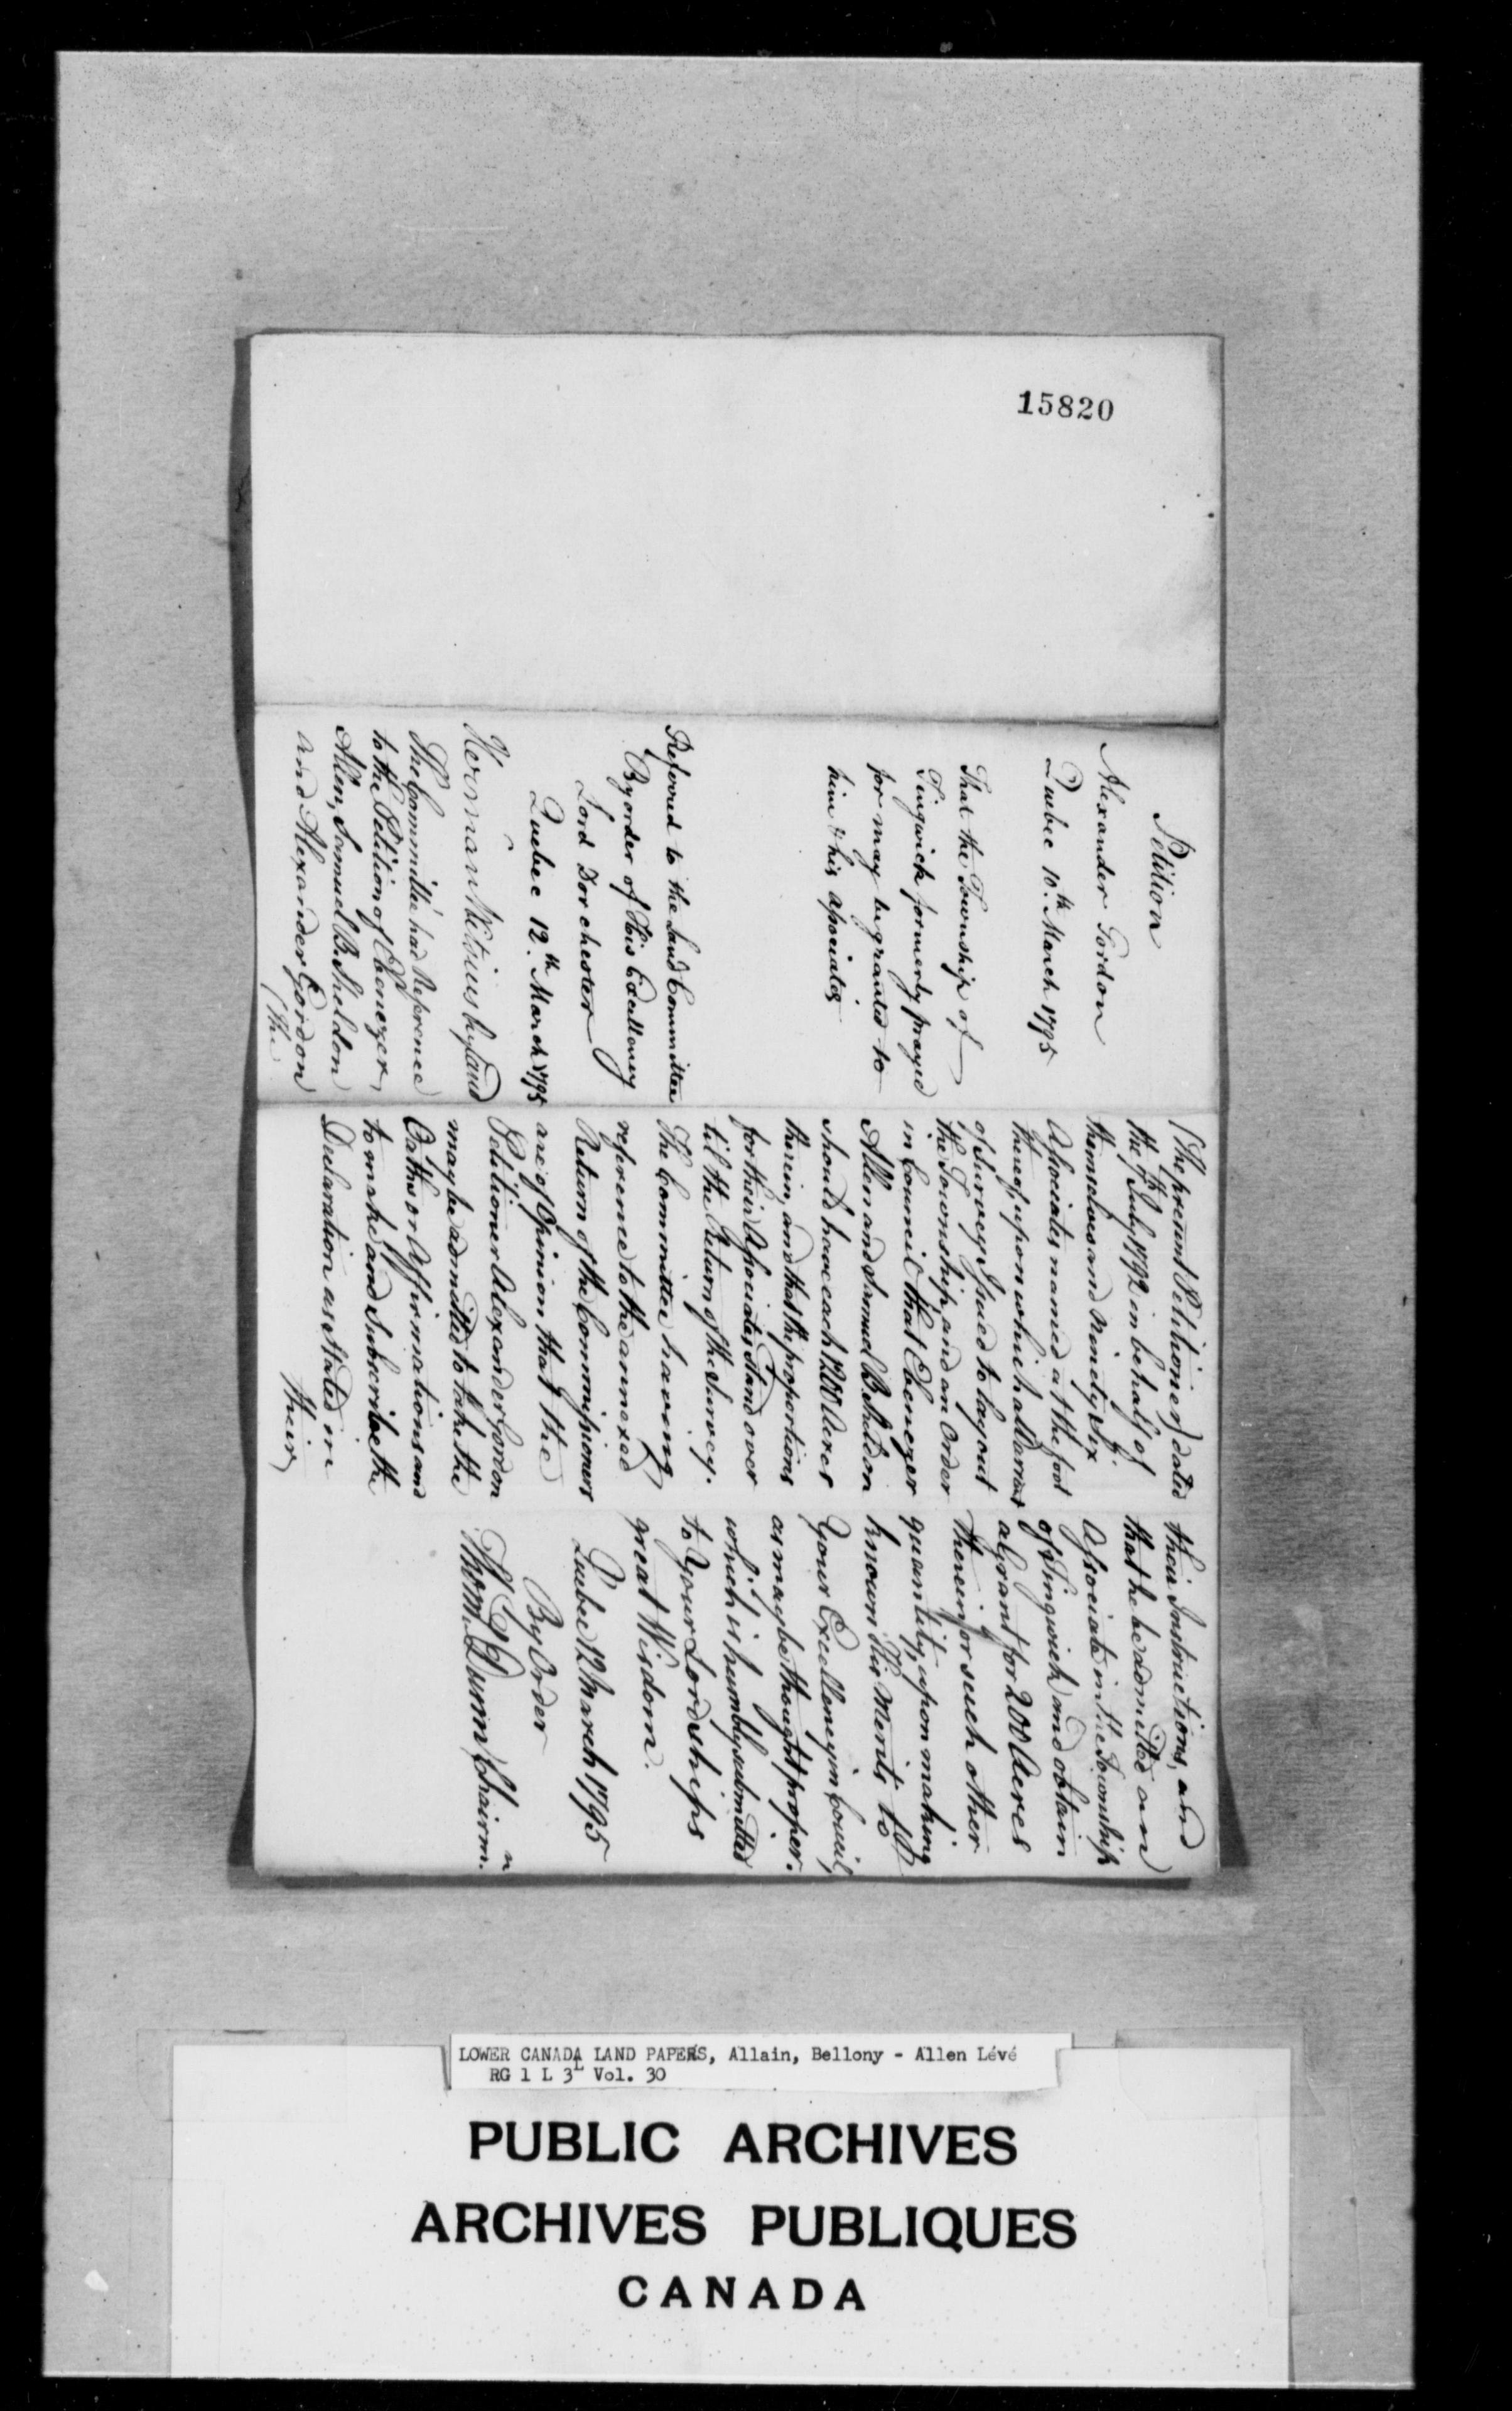 15820
Petition
Alexander Gordon
Quebec 10.th March 1795
That the Township of
Tingwick formerly prayed
for may be granted to
him & his associates
Referred to the Land Committee
By order of His Excellency
Lord Dorchester
Quebec 12.th March 1795
Herman Witsius Ryland
The Committee had Reference
to the Petition of Ebenezer
Allen, Samuel B. Sheldon
and Alexander Gordon
(The
(The present Petitioner) dated
the July 1792 in behalf of
themselves and Ninety Six
Associates named at the foot
thereof, upon which a Warrant
of Survey Issued to lay out
the Township, and an Order
in Council that Ebenezer
Allen and Samuel B. Sheldon
should have each 1200 Acres
therein, and that the proportions
for their Associates Stand over
til the Return of the Survey.
The Committee having
reference to the annexed
Return of the Commissioners
are of Opinion that the
Petitioner Alexander Gordon
may be admitted to take the
Oaths or Affirmations and
to make and Subscribe the
Declaration as Stated in
their
their Instructions, and
that he be admitted an
Associate in the Township
of Tingwick and obtain
a Grant for 200 Acres
therein, or such other
quantity, upon making
known His Merits to
Your Excellency in Council,
as may be thought proper.
which is humbly submitted
to Your Lordships
great Wisdom.
Quebec 12 March 1795
By Order
Thom. Dunn Chairm.n
LOWER CANADA LAND PAPERS, Allain, Bellony - Allen Lévé
RG 1 L 3L Vol. 30
PUBLIC ARCHIVES
ARCHIVES PUBLIQUES
CANADA